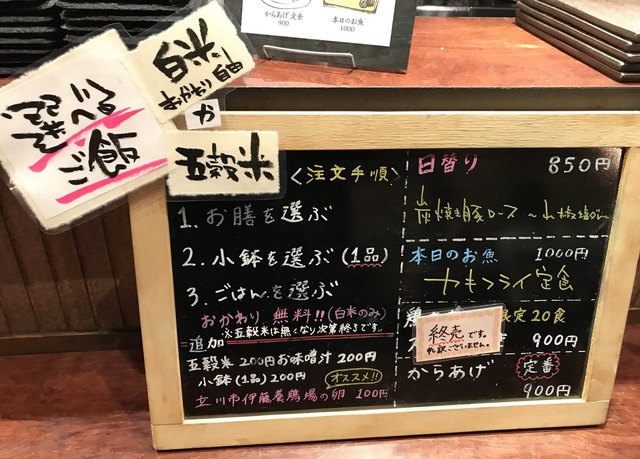 からあげ定食
900
本日のお魚
1000
白米
おかわり自由
か
五穀米
選べる
ご飯
〈注文手順〉
1. お膳を選ぶ
2. 小鉢を選ぶ (1品)
3. ごはんを選ぶ
おかわり 無料!! (白米のみ)
※五穀米は無くなり次第終了です。
追加
五穀米 200円 お味噌汁 200円
小鉢 (1品) 200円 オススメ!!
立川市伊藤養鶏場の卵 100円
日替り 850円
炭焼き豚ロース
本日のお魚 1000円
カキフライ定食
鶏 限定20食
終売です。
申し訳ございません。
900円
からあげ 定番
900円